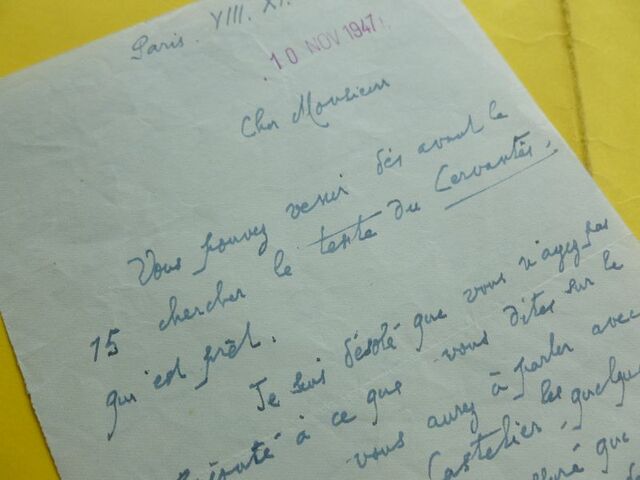 Paris. VIII. XI.
10 NOV 1947
Cher Monsieur
Vous pouvez venir dès avant le
15 chercher le texte du Cervantès,
qui est prêt.
Je suis désolé que vous n'ayez pas
à ce que vous dites sur le
vous aurez à parler avec
Castelier, les quelque
que